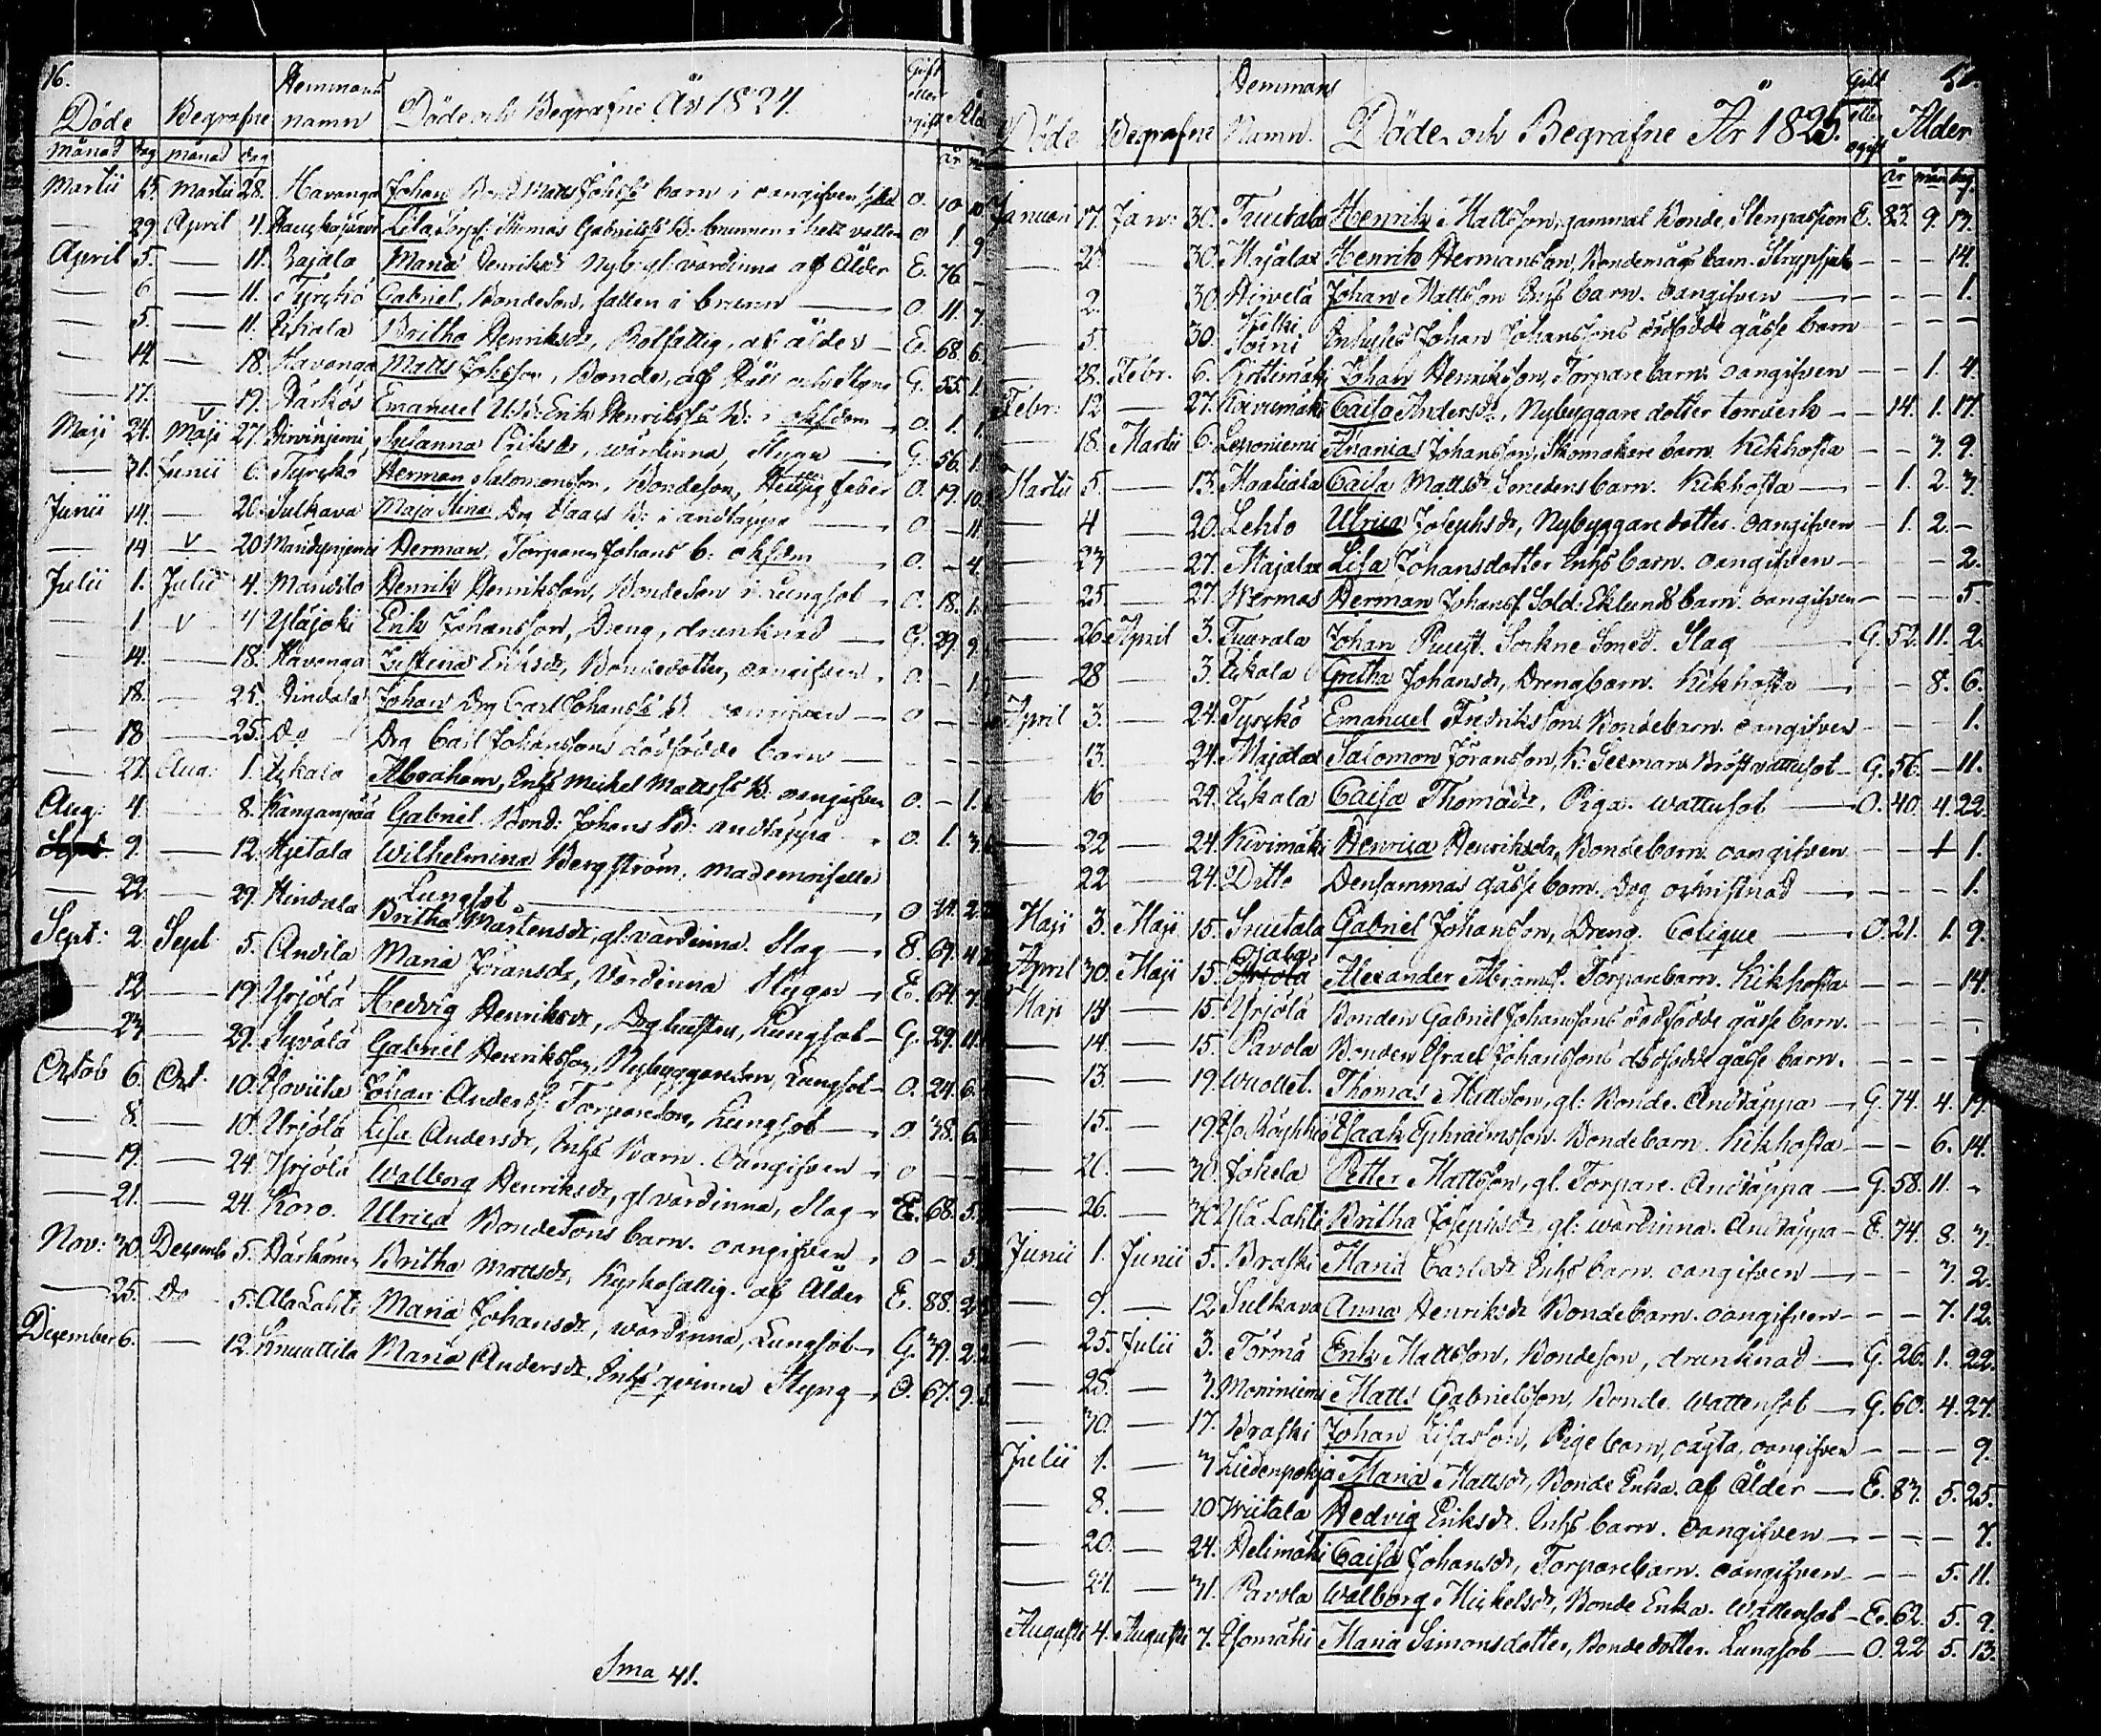 16.
Hemmans Gift
Döde Begrafne namn Döde och Begrafne År 1824. eller ogift Ålder
månad dag månad dag år mån
Martii 25 Martii 28. Havanga Johan Bond. Matts Johss barn i oangifven sjukd. O. 10 10
— 29 April 4. Lisa Torp: Thomas Gabrielss B: brunnen i hett vatten O 1 9
April 5. — 11. Rajala Maria Henriksdr Nyb: gl: värdinna af Ålder E. 76 -
— 6 — 11. Tyrckö Gabriel, Bondeson, fallen i brunn — O. 11. 7.
— 5. — 11. Uckala Britha Henriksdr, Rotfattig, af ålder — E. 68. 6.
— 14. — 18. Havanga Matts Johsson, Bonde, af Håll och Stygn G. 55. 1.
— 17. — 19. Härkös Emanuel Erik Henrikss B: i O. 1. 1.
Maji 24. Maji 27. Hirvinjemi Susanna Eriksdr, wärdinna, Stygn — G. 56. 1.
— 31. Junii 6. Tyrckö Herman Salomonsson, Bondeson, Hettsig feber O. 19. 10
Junii 14. — 20. Sulkava Maja Stina Drg Isaacs B: i andtäppa — O — 11
— 14 — 20 Herman, Torparen Johans b: — O. — 4.
Julii 1. Julii 4. Mandila Henrik Henriksson, Bondeson i Lungsot — O. 18. 1.
— 1 v 4 Yläjoki Erik Johansson, Dreng, drunknad — G. 29. 9.
— 14. — 18. Havanga Eriksdr, Bondedotter, oangifven. O — 1.
— 18. — 25. Hindala Johan Drg Carl Johanss B. oangifven — O — —
— 18 — 25. Do Drg Carl Johanssons dödfödde barn — — — —
— 27. Aug: 1. Uckala Abraham, Inhs Mickel Mattss B: oangifven O. — 1.
Aug: 4. — 8. Kanganpää Gabriel Bond: Johans B: andtäppa O. 1. 3.
9. — 12. Hjetala Wilhelmina Bergström, mademoiselle
Lungsot — O 24. 2.
— 22 — 29. Hindala Britha Mårtensdr, gl: värdinna. Slag — E. 69. 4
Sept: 2. Sept. 5. Andila Maria Jöransdr, Värdinna Stygn — E. 64. 7.
— 12 — 19. Yrjölä Hedvig Henriksdr, Drg hustru, Lungsot — G. 29. 11.
— 23 — 29. Syvälä Gabriel Henriksson, Nybyggareson, Lungsot — O. 24. 6.
Octob 6. Oct. 10. Johan Anderss: Torpareson, Lungsot — O. 38. 6.
— 8. — 10. Yrjölä Lisa Andersdr, Inhs Barn. Oangifven — O — —
— 19. — 24. Yrjölä Walborg Henriksdr, gl värdinna, Slag — E. 68. 5.
— 21. — 24. Koro. Ulrica Bondesons barn. oangifven — O — 5
Nov: 30. Decemb 5. Härkönen Britha Mattsdr, Kyrkofattig. af Ålder E. 88. 2.
— 25. Do 5. Ala Lahti Maria Johansdr, wärdinna, Lungsot — G. 39. 2.
December 6. — 12. Knuuttila Maria Andersdr. Inhs qvinna Styng — O. 67. 9.
Sma 41.
Hemmans Gift
Döde Begrafne Namn. Döde och Begrafne År 1825. eller ogift Ålder
år mån dag.
Januari 17. Janu: 30. Tuuitala Henrik Mattsson, gammal Bonde, Stenpassion E. 83. 9. 13.
— 30. Majalax Henrik Hermansson, Bondemågs barn. Strupsjuk — — — 14.
— 2. 30. Hirvelä Johan Mattsson Inhs barn. oangifven — — — 1.
— 5. 30. Koski Inhyses Johan Johanssons dödfödde gässe barn — — —
— 28. Febr. 6. Johan Henriksson, Torpare barn. oangifven — — 1. 4.
Febr: 12 — 27. Koivumäki Caisa Andersdr, Nybyggare dotter torrverk — — 14. 1. 17.
— 18. Martii 6. Leponiemi Ananias Johansson, Skomakare barn. Kikhosta — — 7. 9.
Martii 5. — 13. Maaliala Caisa Mattsdr Smedens barn. Kikhosta — — 1. 2. 3.
— 4 — 20. Lehto Ulrica Josephsdr, Nybyggare dotter. oangifven — 1. 2. —
— 23 — 27. Majalax Lisa Johansdotter Inhs barn. oangifven — — — 2.
— 25. — 27. Wermas Herman Johanss. Sold: Eklunds barn. oangifven — — — 5.
— 26. April 3. Tuurala Johan Puust. Sockne Smed. Slag G. 52. 11. 2.
— 28 — 3. Uckala Gretha Johansdr, Drengbarn. Kikhosta — — — 8. 6.
April 3. — 24. Tyrckö Emanuel Fredriksson Bondebarn. oangifven — — — 1.
— 13. 24. Majalax Salomon Jöransson, K: Seeman Bröstvattusot — G. 56. — 11.
— 16 — 24. Uckala Caisa Thomasdr, Piga. Wattusot — O. 40. 4. 22.
— 22 — 24. Kivimäki Henrica Henriksdr, Bondebarn. oangifven — — 1.
— 22 — 24. Ditto Densammas gässe barn. Dog ochristnad — — — 1.
Maji 3. Maji 15. Snuutala Gabriel Johansson, Dreng. Colique — O. 21. 1. 9.
Ojala
April 30. Maji 15. Alexander Abramss. Torparebarn. Kikhosta — — — 14.
Maji 14 — 15. Yrjölä Bonden Gabriel Johanssons dödfödde gässe barn. — — — —
— 14. — 15. Pavola Bonden Israel Johanssons dödfödde gässe barn. — — — —
— 13. — 19. Wuollet. Thomas Mattsson, gl: Bonde. Andtäppa — G. 74. 4. 19
— 15. — 19. Iso. Röyhkiö Isaak Ephraimsson. Bondebarn. Kikhosta — — — 6. 14.
— 21. — 30. Johela Petter Mattsson, gl. Torpare. Andtäppa — G. 58. 11. -
— 26. — 30 Yla. Lahti Britha Josephsdr, gl: wärdinna. Andtäppa — E. 74. 8. 3.
Junii 1. Junii 5. Braski Maria Carlsdr Inhs barn. oangifven — — — 7. 2.
— 9. — 12. Sulkava Anna Henriksdr Bondebarn. oangifven — — — 7. 12.
— 25. Julii 3. Törmä Erik Mattsson, Bondeson, drunknad — G. 26. 1. 22.
— 28. — 3. Matts Gabrielsson, Bonde. Wattensot — G. 60. 4. 27.
— 30. — 17. Braski Johan Lisasson, Pigebarn, oägta, oangifven — — — 9.
Julii 1. — 3 Liedenpohja Maria Mattsdr, Bonde Enka. af Ålder — E. 83. 5. 25.
— 8. — 10 Wiitala Hedvig Eriksdr. Inhs barn. oangifven — — — 7.
— 20. — 24. Helimäki Caisa Johansdr, Torparebarn. oangifven — — — 5. 11.
— 24. — 31. Pavola Walborg Mickelsdr, Bonde Enka. Wattensot — E. 62. 5. 9.
Augusti 4. Augusti 7. Isomäki Maria Simonsdotter, Bondedotter. Lungsot — O. 22 5. 13.